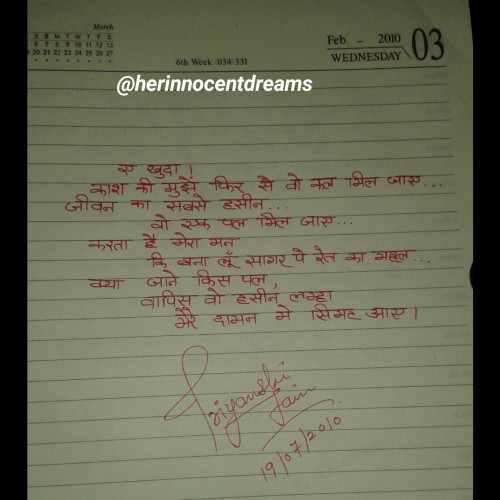 March
S S M T W T F S
6 7 8 9 10 11 12 13
20 21 22 23 24 25 26 27
6th Week 034-331
Feb - 2010
WEDNESDAY
03
@herinnocentdreams
ए खुदा !
काश की मुझे फिर से वो कल मिल जाए...
जीवन का सबसे हसीन...
वो एक पल मिल जाए...
करता है मेरा मन
कि बना लूँ सागर पे रेत का महल...
क्या जाने किस पल,
वापिस वो हसीन लम्हा
मेरे दामन मे सिमट आए।
Priyanshi
Jain
19/07/2010